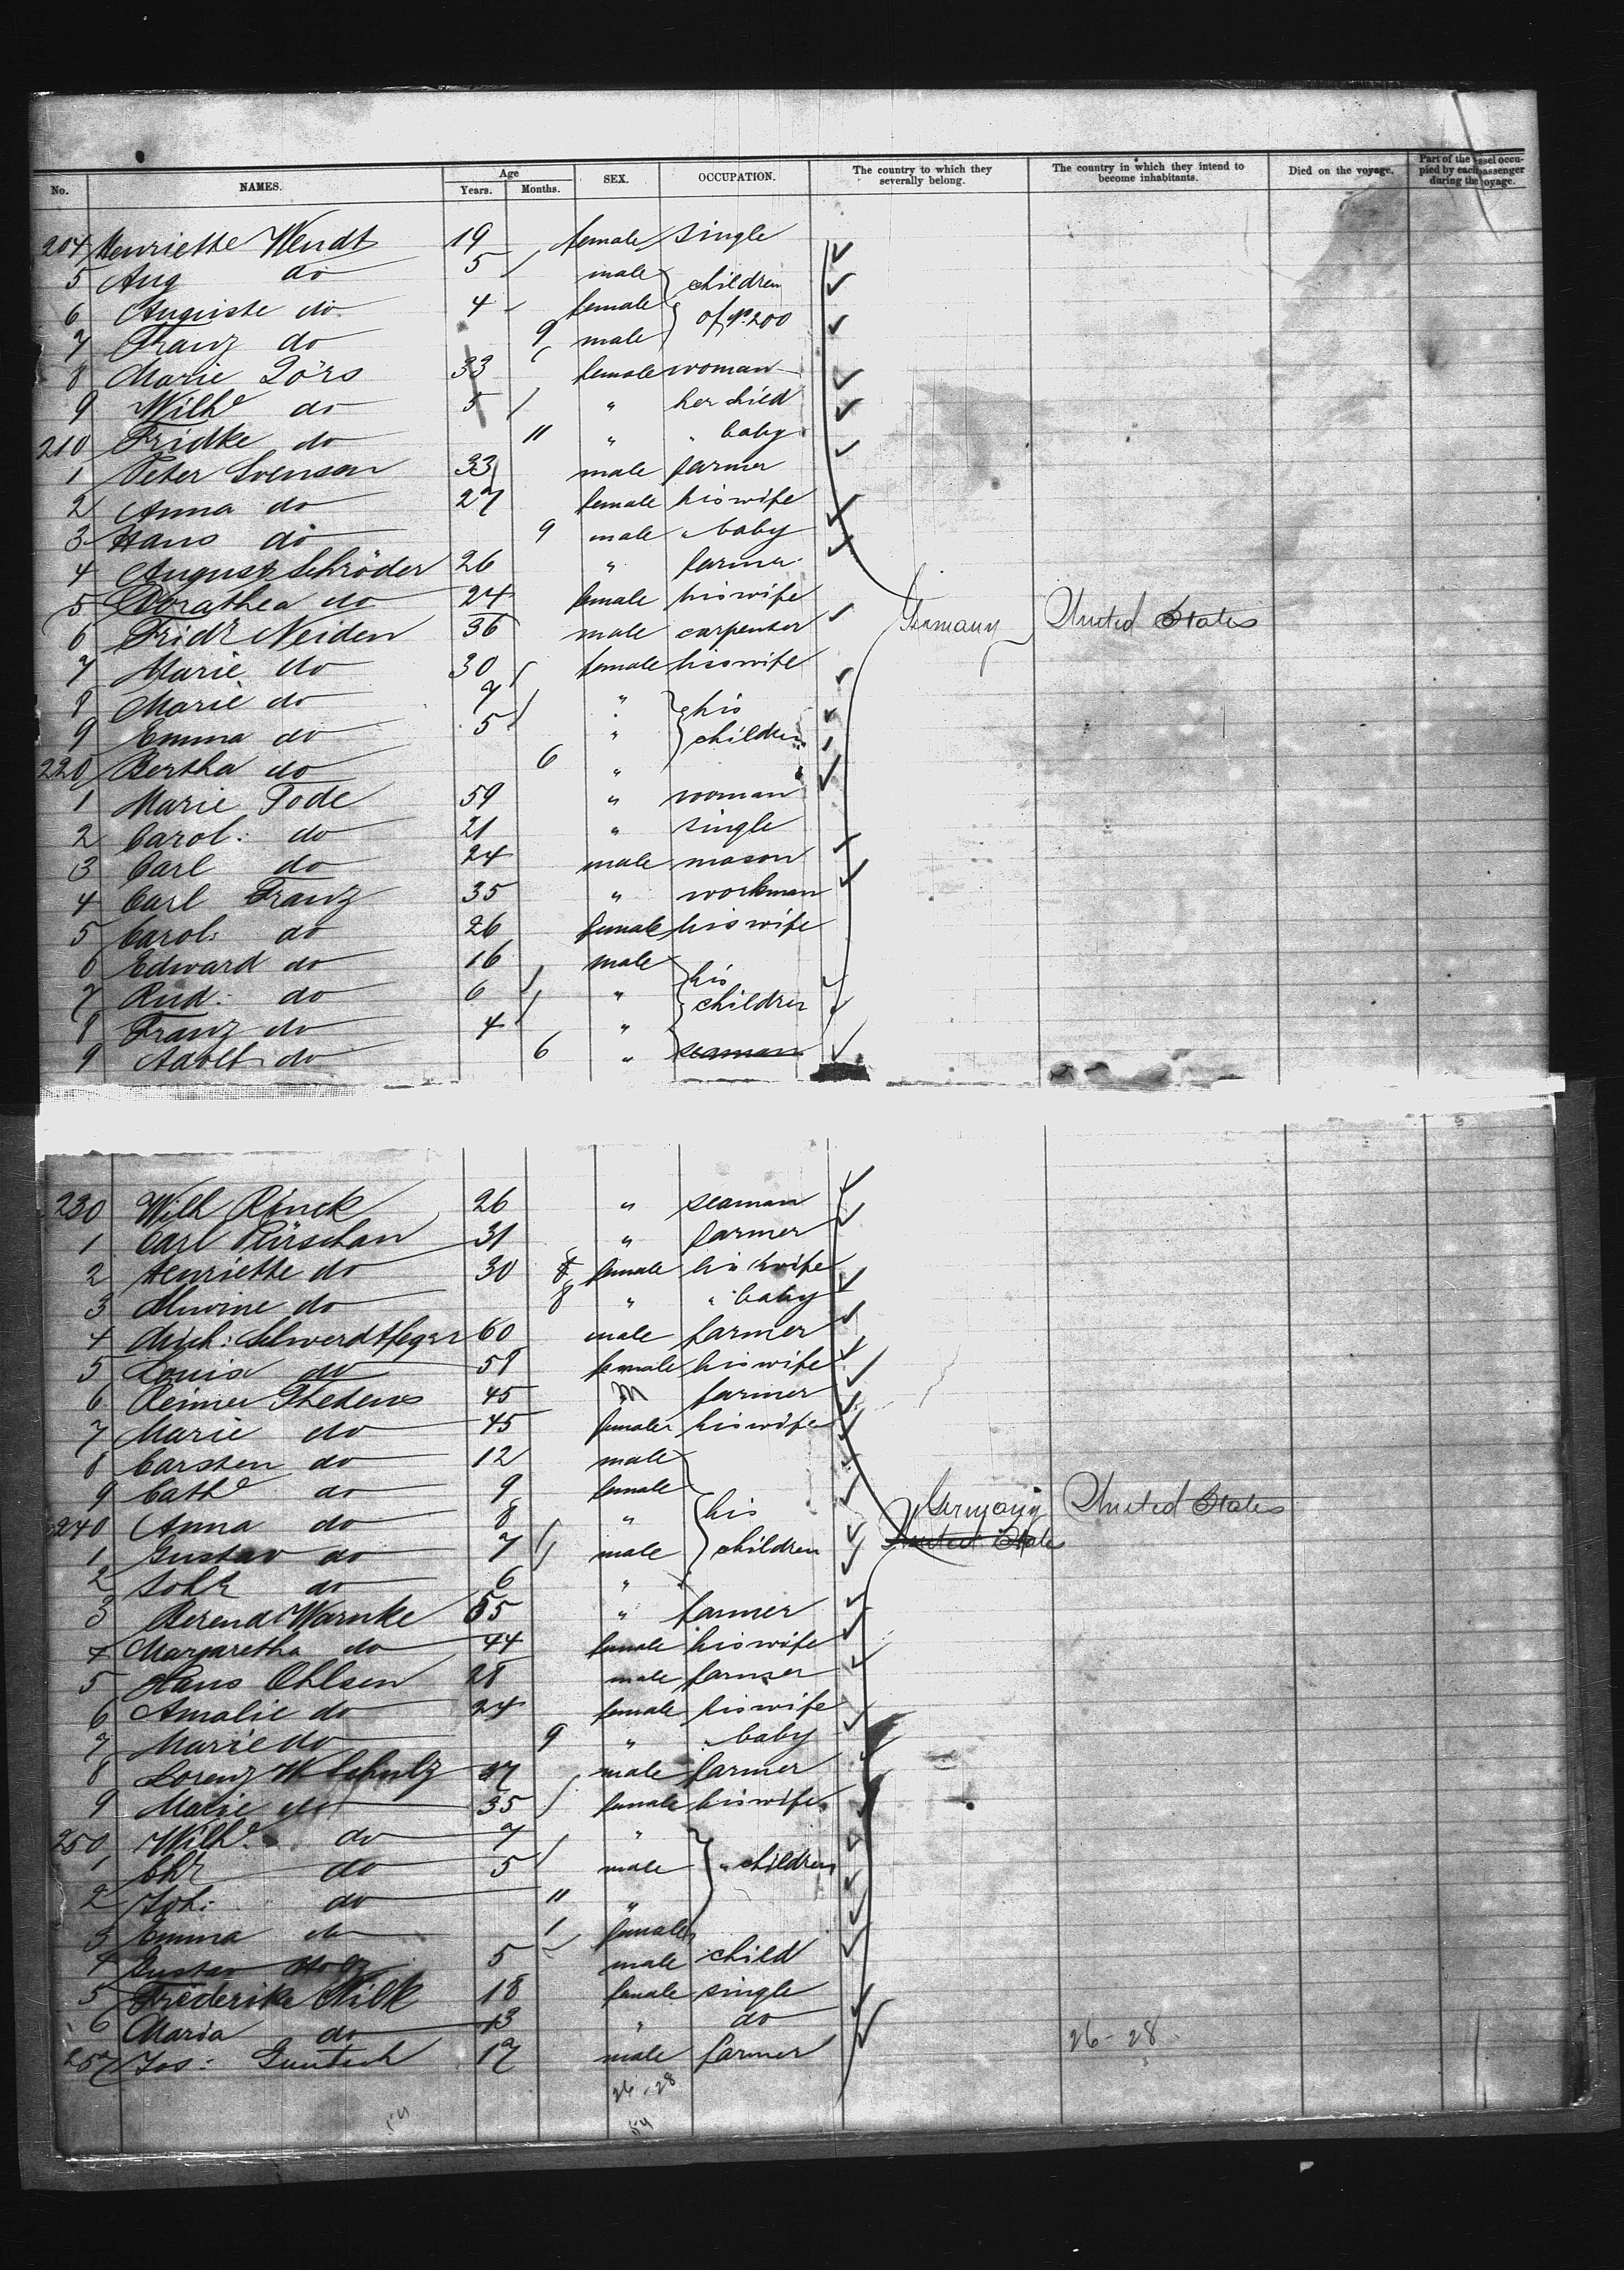 No. NAMES. Age Years. Months. SEX. OCCUPATION. The country to which they severally belong. The country in which they intend to become inhabitants. Died on the voyage. Part of the vessel occupied by each passenger during the voyage.
204 Henriette Wendt 19 female single
5 Aug do 5 male children
6 Auguste do 4 female of No. 200
7 Franz do 9 male
8 Marie Dörs 33 female woman
9 Wilhe do 5 " her child
210 Fridke do 11 " " baby
1 Peter Svenson 33 male farmer
2 Anna do 27 female his wife
3 Hans do 9 male " baby
4 August Schröder 26 " farmer
5 Dorathea do 24 female his wife
6 Fridr Neiden 36 male carpenter Germany United States
7 Marie do 30 female his wife
8 Marie do 7 " his
9 Emma do 5 " children
220 Bertha do 6 "
1 Marie Tode 59 " woman
2 Carol: do 21 " single
3 Carl do 24 male mason
4 Carl Franz 35 " workman
5 Carol: do 26 female his wife
6 Edward do 16 male his
7 Rud: do 6 " children
8 Franz do 4 "
9 Adolf do 6 " seaman
230 Wilh Rinck 26 " seaman
1 Carl Pürschan 31 " farmer
2 Henriette do 30 female his wife
3 Alwine do 8 " " baby
4 Mich: Schwerdtfeger 60 male farmer
5 Louise do 58 female his wife
6 Reimer Thedens 45 M farmer
7 Marie do 45 female his wife
8 Carsten do 12 male
9 Cathe do 9 female
240 Anna do 8 " his Germany United States
1 Gustav do 7 male children United State
2 Joh do 6 "
3 Berend Warnke 55 " farmer
4 Margaretha do 44 female his wife
5 Hans Ohlsen 28 male farmer
6 Amalie do 24 female his wife
7 Marie do 9 " " baby
8 Lorenz W Schulz 37 male farmer
9 Marie do 35 female his wife
250 Wilhe do 7 "
1 Chr do 5 male " children
2 Joh: do 11 "
3 Emma do 1 female
4 Gustav 5 male child
5 Friederike Wilk 18 female single
6 Maria do 13 " do
257 Jos: Guntsch 17 male farmer
26-28
26-28
54
54